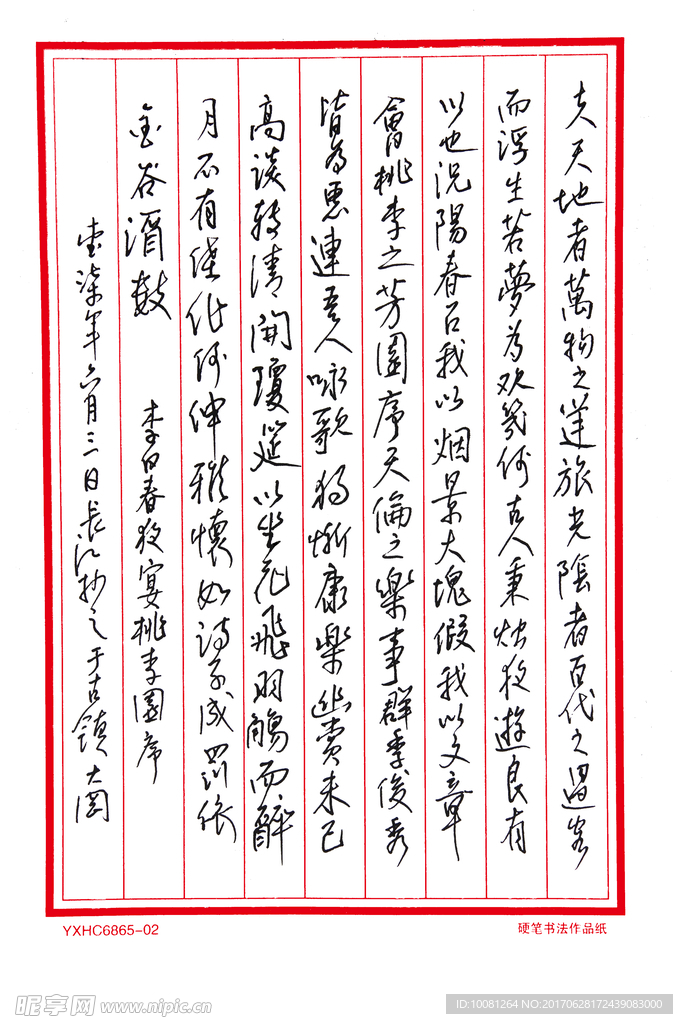 夫天地者萬物之逆旅光陰者百代之過客
而浮生若夢为欢幾何古人秉烛夜遊良有
以也況陽春召我以烟景大塊假我以文章
會桃李之芳園序天倫之樂事群季俊秀
皆为惠連吾人咏歌独慚康樂幽賞未已
高談转清開瓊筵以坐花飛羽觴而醉
月不有佳作何伸雅懷如詩不成罰依
金谷酒數 李白春夜宴桃李園序
壹柒年六月三日長江抄之于古鎮大
YXHC6865-02
硬笔书法作品纸
昵享网 www.nipic.cn
ID:10081264 NO:20170628172439083000